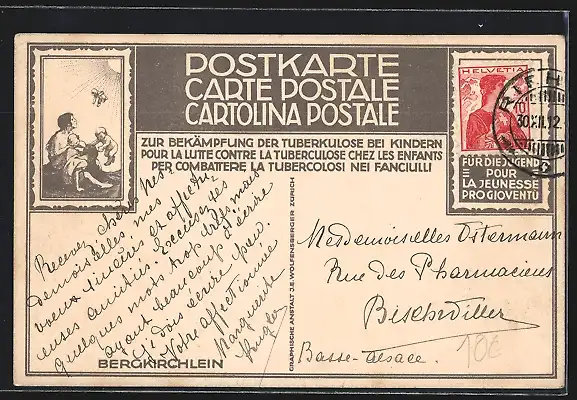 POSTKARTE
CARTE POSTALE
CARTOLINA POSTALE
ZUR BEKÄMPFUNG DER TUBERKULOSE BEI KINDERN
POUR LA LUTTE CONTRE LA TUBERCULOSE CHEZ LES ENFANTS
PER COMBATTERE LA TUBERCOLOSI NEI FANCIULLI
HELVETIA
10
30.XII.12.
FÜR DIE JUGEND
POUR
LA JEUNESSE
PRO GIOVENTÙ
Recevez, chères
Demoiselles mes
voeux sincères et affectu-
euses amitiés. Excusez les
quelques mots trop brefs mais
ayant beaucoup d'écrire
je dois écrire peu.
Votre affectionnée
Marguerite
BERGKIRCHLEIN
GRAPHISCHE ANSTALT J.E.WOLFENSBERGER ZÜRICH
Mesdemoiselles Ostermann
Rue des Pharmaciens
Bischwiller
Basse-Alsace.
10€